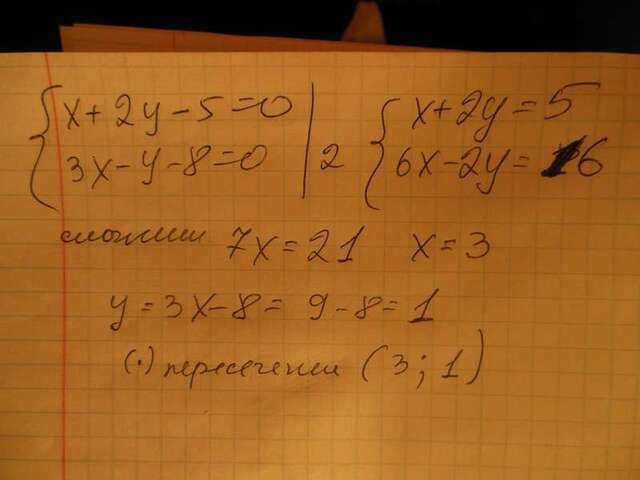 { x + 2y - 5 = 0 | { x + 2y = 5
{ 3x - y - 8 = 0 | 2 { 6x - 2y = 16
сложим 7x = 21 x = 3
y = 3x - 8 = 9 - 8 = 1
(·) пересечения (3; 1)